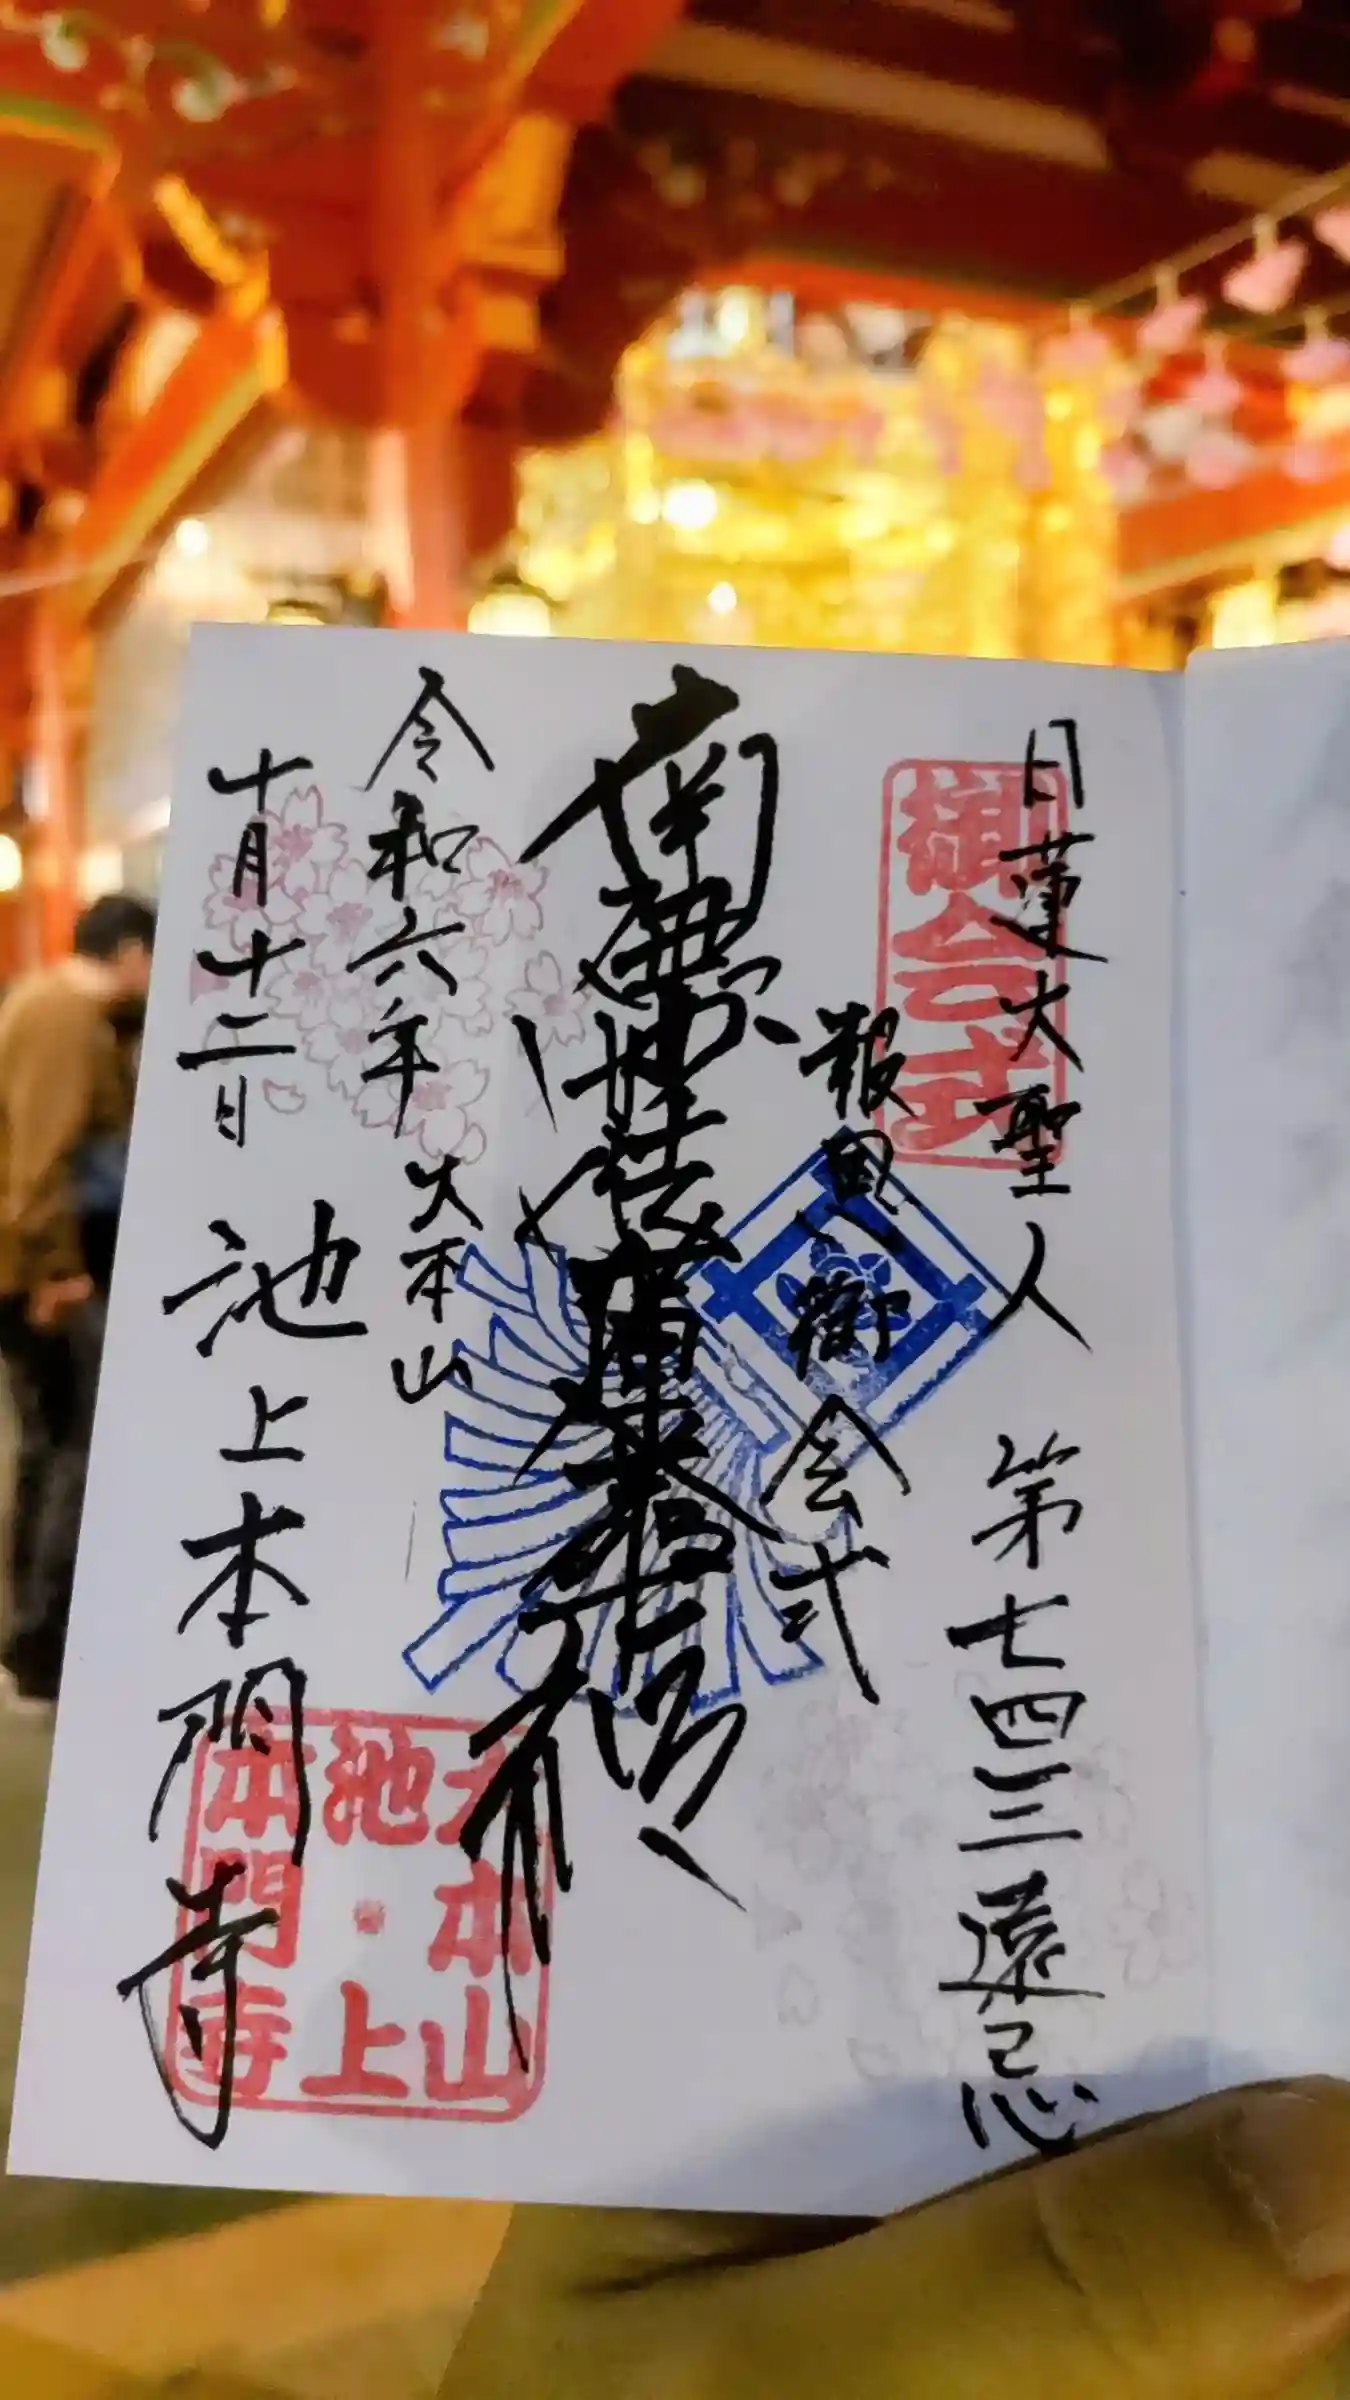 日蓮大聖人 第七四三遠忌
御会式
報恩御会式
南無妙法蓮華経
令和六年 大本山
十月十二日 池上本門寺
大本山
池上
本門寺